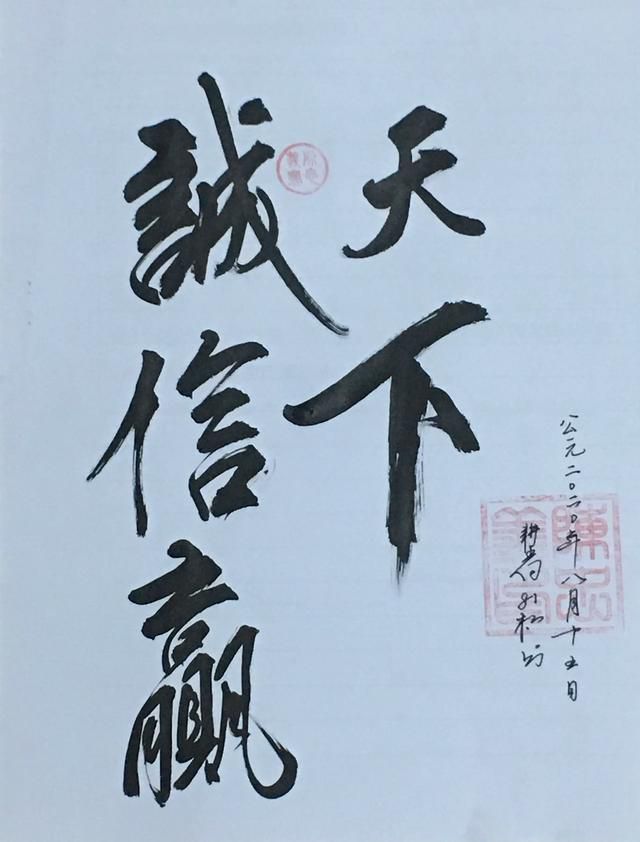 誠信贏
天下
公元二〇二〇年八月十五日